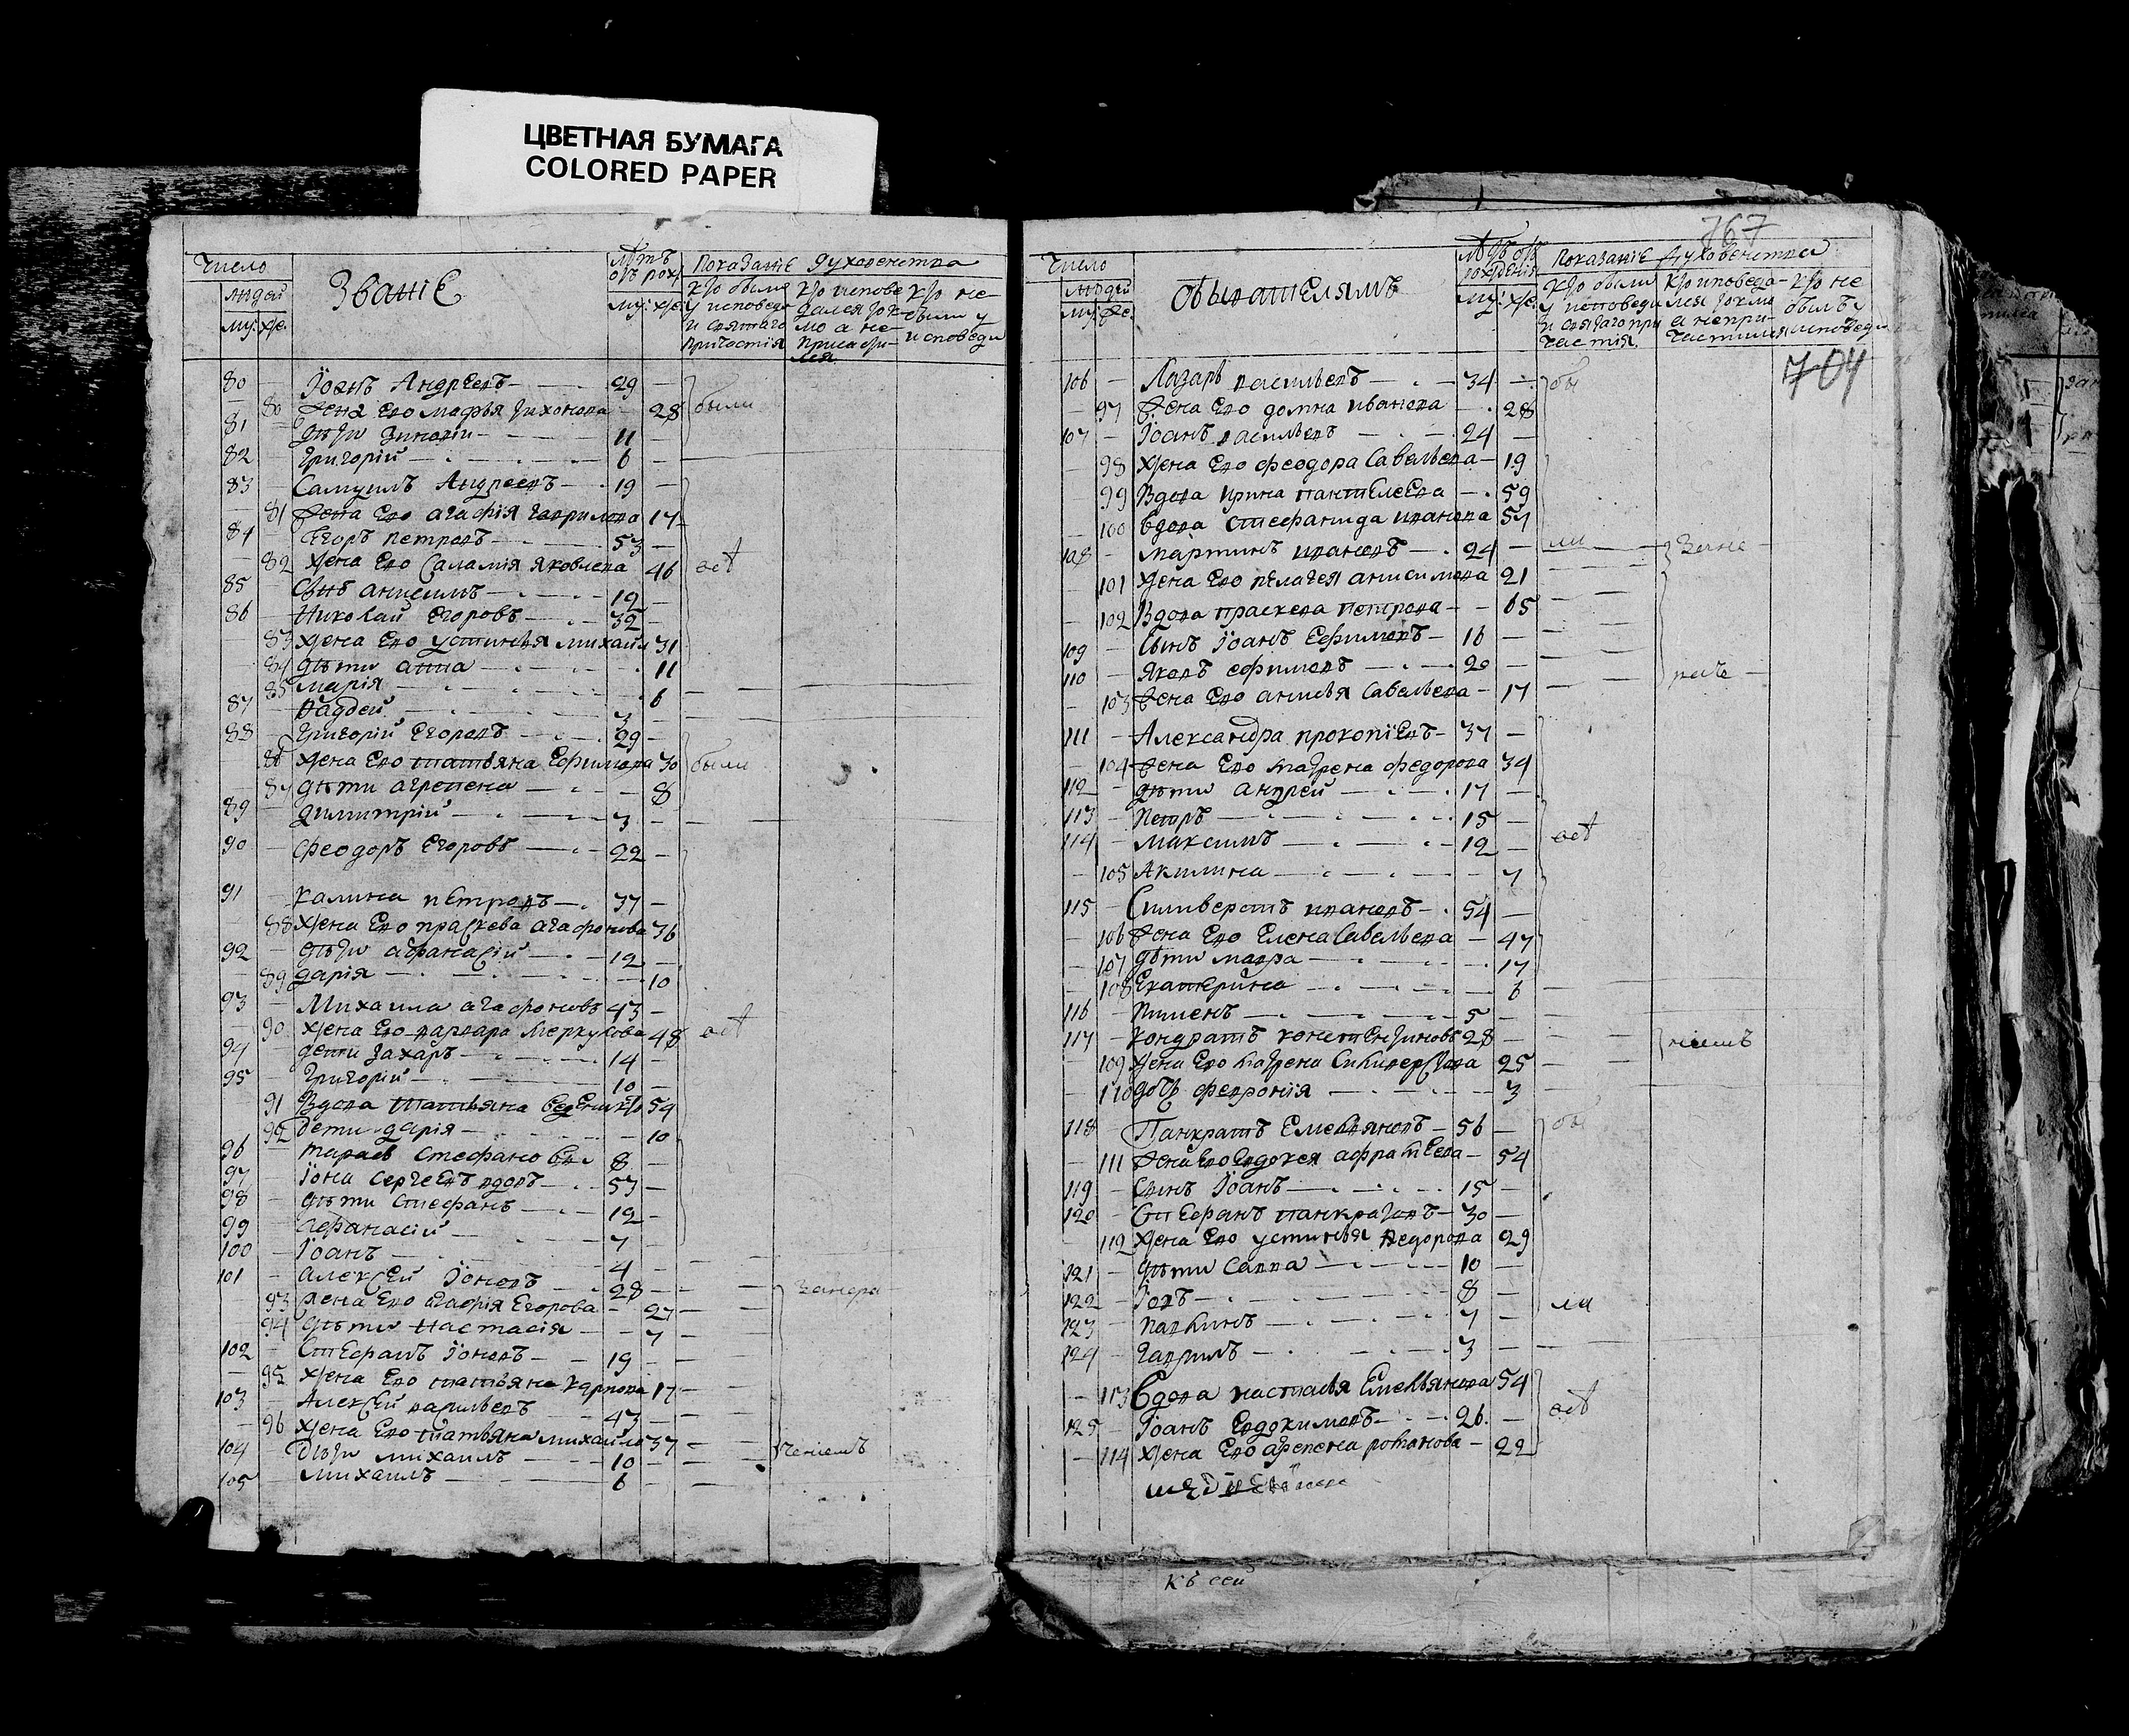 ЦВЕТНАЯ БУМАГА
COLORED PAPER
Число
людей
му: же.
Званіе
лѣтъ
отъ рож
му: же.
Показаніе духовенства
кто были у исповеди и святаго причастія
кто исповедался токмо а не причастился
кто не были у исповеди
80 — Іоанъ Андреевъ — 29 —
— 80 жена Его Марѳья Тихонова — 28 были
81 — дѣти Зиновій — 11 —
82 — Григорій — 6 —
83 — Самуилъ Андреевъ — 19 —
— 81 жена Его агафія гаврилова 17
84 — Егоръ петровъ — 53 —
— 82 жена Его Саламія Яковлева 46 вст
85 — Сынъ анисимъ — 19 —
86 — Николай Егоровъ — 32 —
— 83 жена Его устинья михайл 31
— 84 дѣти анна — 11
— 85 марія — 6
87 — Фадей — 3 —
88 — Григорій Егоровъ — 29 —
— 86 жена Его татьяна Ефимова 30 были
— 87 дѣти агрепена — 8
89 — Димитрій — 3 —
90 — Феодоръ Егоровъ — 22 —
91 — калина петровъ — 37 —
— 88 жена Его праскева агафонова 36
92 — дѣти афанасій — 12 —
— 89 дарія — 10
93 — Михаила агафоновъ 43 —
— 90 жена Его варвара Меркулова 48 вст
94 — дети захаръ — 14 —
95 — Григорій — 10 —
— 91 Вдова татьяна 59
— 92 Дети дарія — 10
96 — 8 —
97 — Іона Сергеевъ вдовъ — 57 —
98 — дѣти Стефанъ — 12 —
99 — афанасій — 7 —
100 — Іоанъ — 4 —
101 — алексей Іоновъ — 28 —
— 93 жена Его агафія Егорова — 27
— 94 дѣти настасія — 7
102 — Стефанъ Іоновъ — 19 —
— 95 жена Его татьяна карпова 17
103 — Алексей васильевъ — 43 —
— 96 жена Его татьяна михайло 37
104 — Дѣти михаилъ — 10 — чениемъ
105 — михаилъ — 6 —
767
704
Число
людей
му: же.
Обывателямъ
лѣтъ отъ
рожденія
му: же.
Показаніе духовенства
кто были у исповеди и святаго причастія
кто исповедался токмо а не причастился
кто не былъ у исповеди
106 — Лазарь васильевъ — 34 — бы
— 97 жена Его домна иванова — 28
107 — Іоанъ васильевъ — 24 —
— 98 жена Его феодора Савельева — 19
— 99 Вдова ирина пантелеева — 59
— 100 вдова стефанида иванова 57
108 — мартинъ ивановъ — 24 — ли
— 101 жена Его пелагея анисимова 21
— 102 Вдова праскева петрова — 65
109 — Сынъ Іоанъ Ефимовъ — 16 —
110 — Яковъ ефимовъ — 20 —
— 103 жена Его анисья Савельева — 17
111 — Александра прокопіевъ — 37 —
— 104 жена Его матрена федорова 34
112 — дѣти андрей — 17 —
113 — Петръ — 15 —
114 — максимъ — 12 — вст
— 105 Акилина — 7
115 — Силиверстъ ивановъ — 54 —
— 106 жена Его Елена Савельева — 47
— 107 дѣти мавра — 17
— 108 Екатерина — 6
116 — Пименъ — 5 —
117 — кондратъ констентиновъ 28 — ниемъ
— 109 жена Его матрена Силиверстова 25
— 110 дочь феврония — 3
118 — Панкратъ Емельяновъ — 56 — бы
— 111 жена Его Евдокея — 54
119 — Сынъ Іоанъ — 15 —
120 — Стефанъ панкратовъ — 30 —
— 112 жена Его устинья Федорова 29
121 — дѣти Савва — 10 —
122 — Іовъ — 8 — ли
123 — 7 —
124 — Гаврилъ — 3 —
— 113 Вдова настасья Емельянова 54
125 — Іоанъ Евдокимовъ — 26 — вст
— 114 жена Его агрепена романова — 22
къ сей